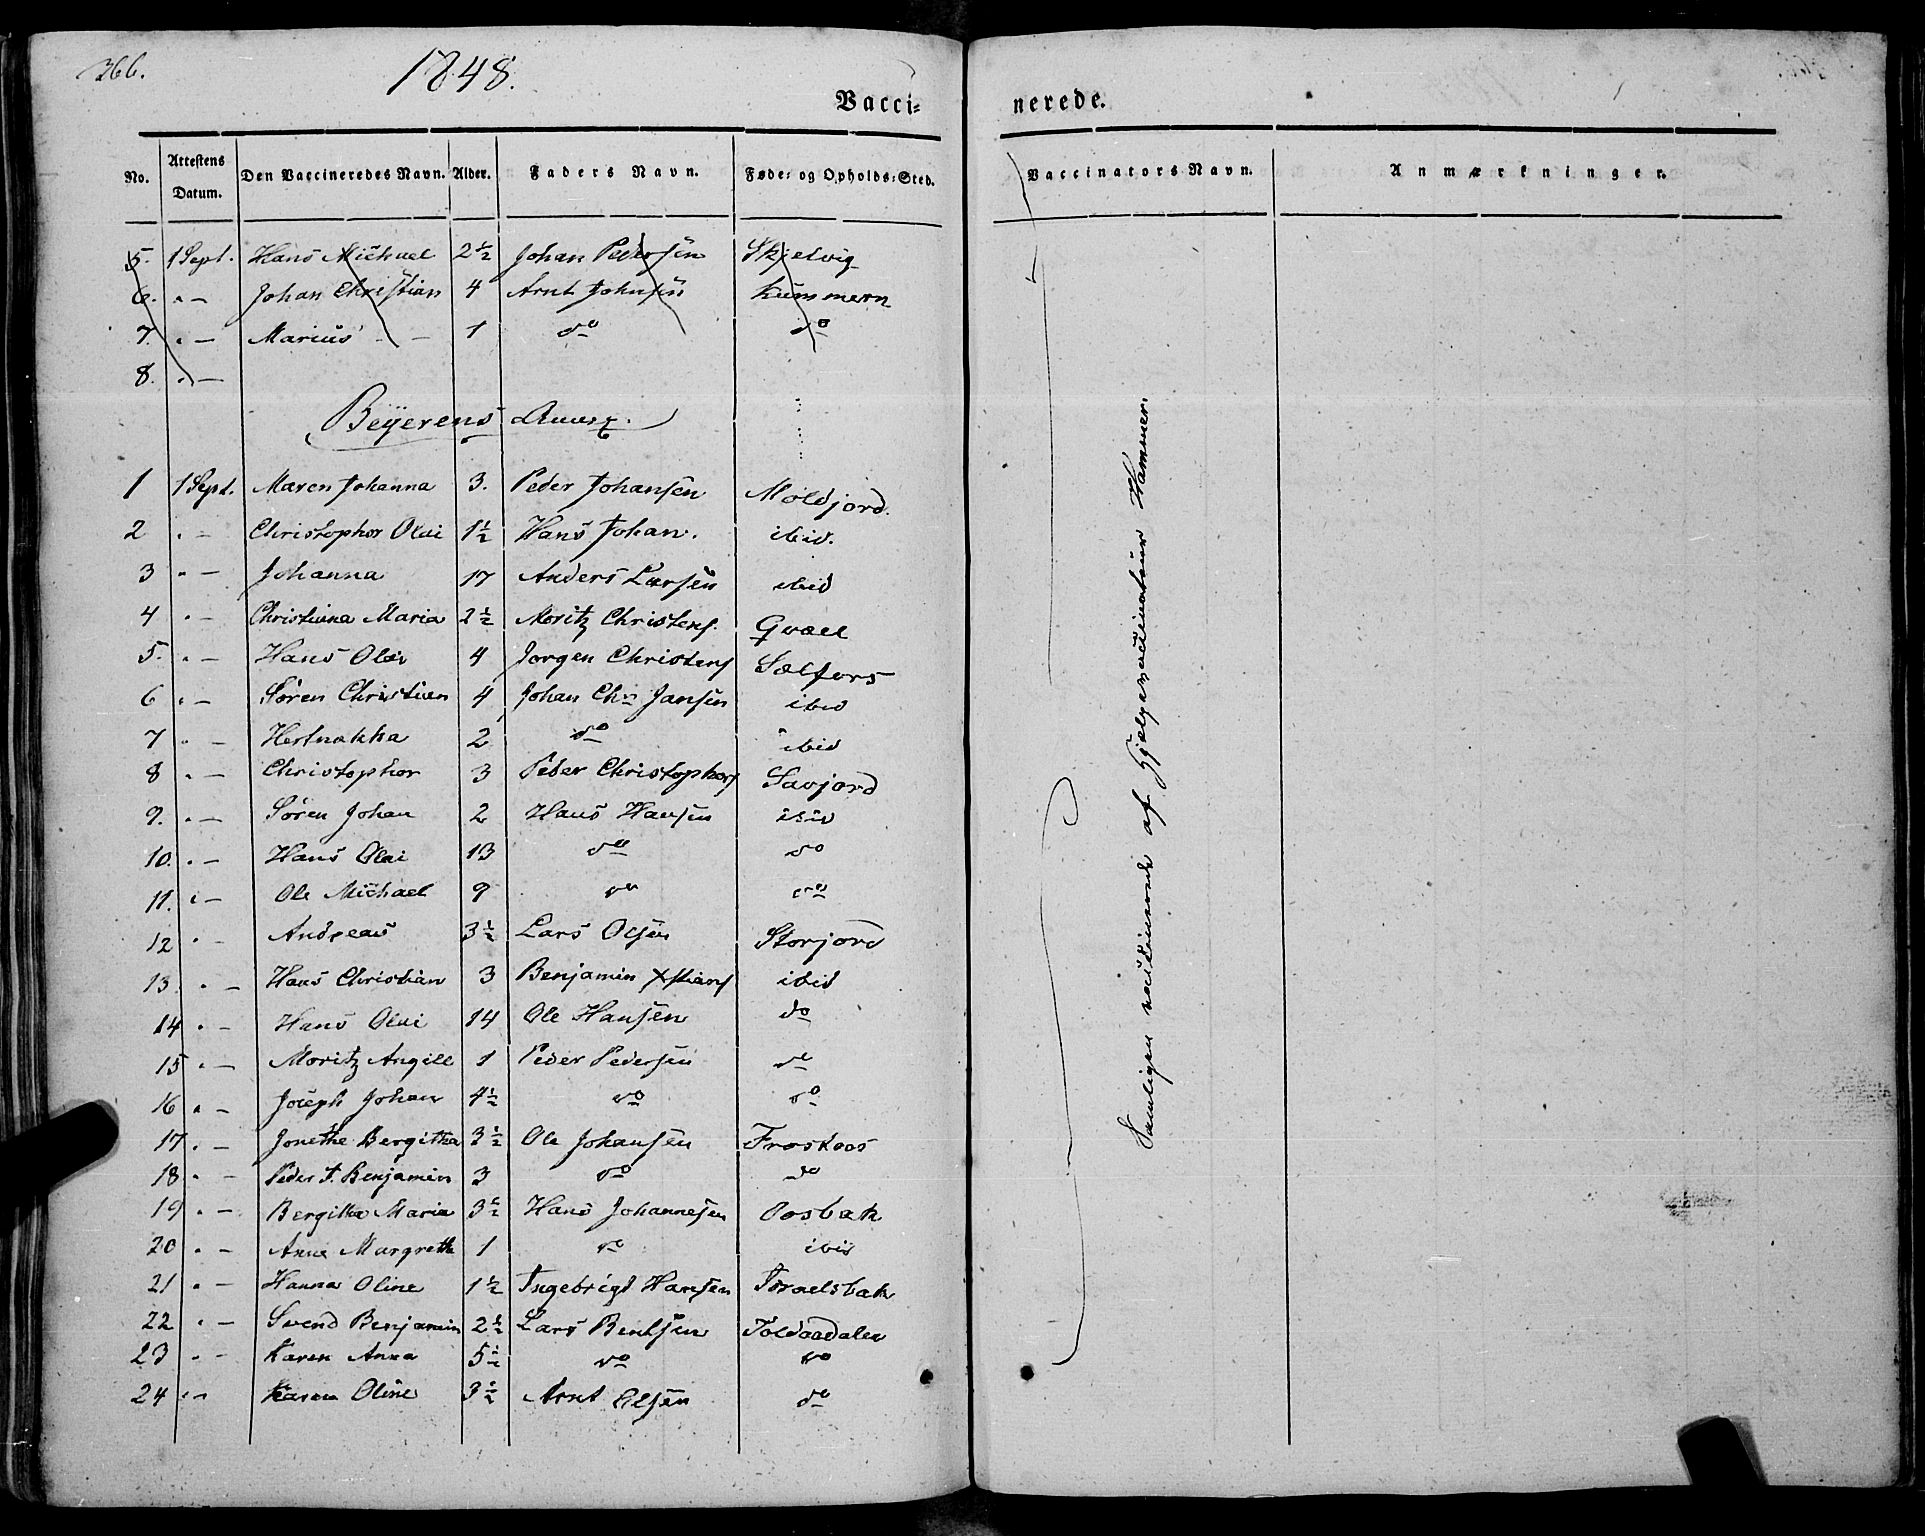 366.
1848.
Vacci=
nerede.
No. Attestens Datum. Den Vaccineredes Navn. Alder. Faders Navn. Føde- og Opholds-Sted.
Vaccinators Navn. Anmærkninger.
5. 1 Sept. Hans Michael 2½ Johan Pedersen Skjelvig
6. " — Johan Christian 4 Arnt Johnsen Kummern
7. " — Marius 1 do do
8. " —
Beÿerens Annex.
1 1 Sept. Maren Johanna 3. Peder Johansen Moldjord.
2 " — Christophor Olai 1½ Hans Johan. ibid.
3 " — Johanna 17 Anders Larsen ibid
4 " — Christiana Maria 2½ Moritz Christens. Qvæl
5. " — Hans Olai 4 Jørgen Christens Sælfors
6 " — Søren Christian 4 Johan Chr Jansen ibid
7 " — 2 do ibid
8 " — Christophor 3 Peder Christophers Savjord
9. " — Søren Johan 2 Hans Hansen ibid
10. " — Hans Olai 13 do do
11. " — Ole Michael 9 do do
12 " — Andreas 3½ Lars Olsen Storjord
13. " — Hans Christian 3 Benjamin Xstians ibid
14 " — Hans Olai 14 Ole Hansen do
15 " — Moritz Angill 1 Peder Pedersen do
16 " — Joseph Johan 4½ do do
17 " — Jonethe Bergitha 3½ Ole Johansen Froskoos
18 " — Peder J. Benjamin 3 do do
19 " — Bergitha Maria 3½ Hans Johannesen Oosbak
20 " — Anne Margreth 1 do ibid
21 " — Hanna Oline 1½ Ingebrigt Hansen Israelsbak
22 " — Svend Benjamin 2½ Lars Bentsen Toldaadalen
23 " — Karen Anna 5½ do do
24 " — Karen Oline 3½ Arnt Olsen do
Samtlige vaccinerede af Hjelpevaccinateur Hammer.